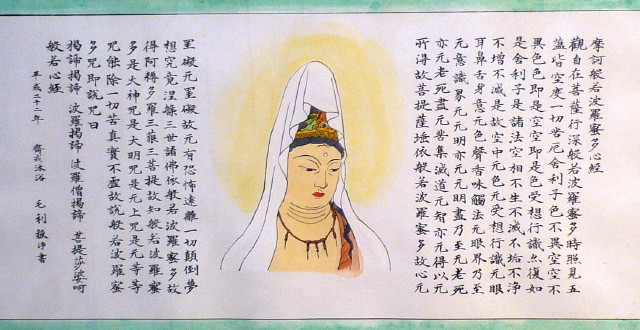 摩訶般若波羅蜜多心經
觀自在菩薩行深般若波羅蜜多時照見五
蘊皆空度一切苦厄舍利子色不異空空不
異色色即是空空即是色受想行識亦復如
是舍利子是諸法空相不生不滅不垢不浄
不増不減是故空中无色无受想行識无眼
耳鼻舌身意无色聲香味觸法无眼界乃至
无意識界无无明亦无无明盡乃至无老死
亦无老死盡无苦集滅道无智亦无得以无
所得故菩提薩埵依般若波羅蜜多故心无
罣礙无罣礙故无有恐怖遠離一切顛倒夢
想究竟涅槃三世諸佛依般若波羅蜜多故
得阿耨多羅三藐三菩提故知般若波羅蜜
多是大神咒是大明咒是无上咒是无等等
咒能除一切苦真實不虚故説般若波羅蜜
多咒即説咒曰
揭諦揭諦 波羅揭諦 波羅僧揭諦 菩提莎婆呵
般若心經
平成二十二年 齋戒沐浴 毛利 浄書